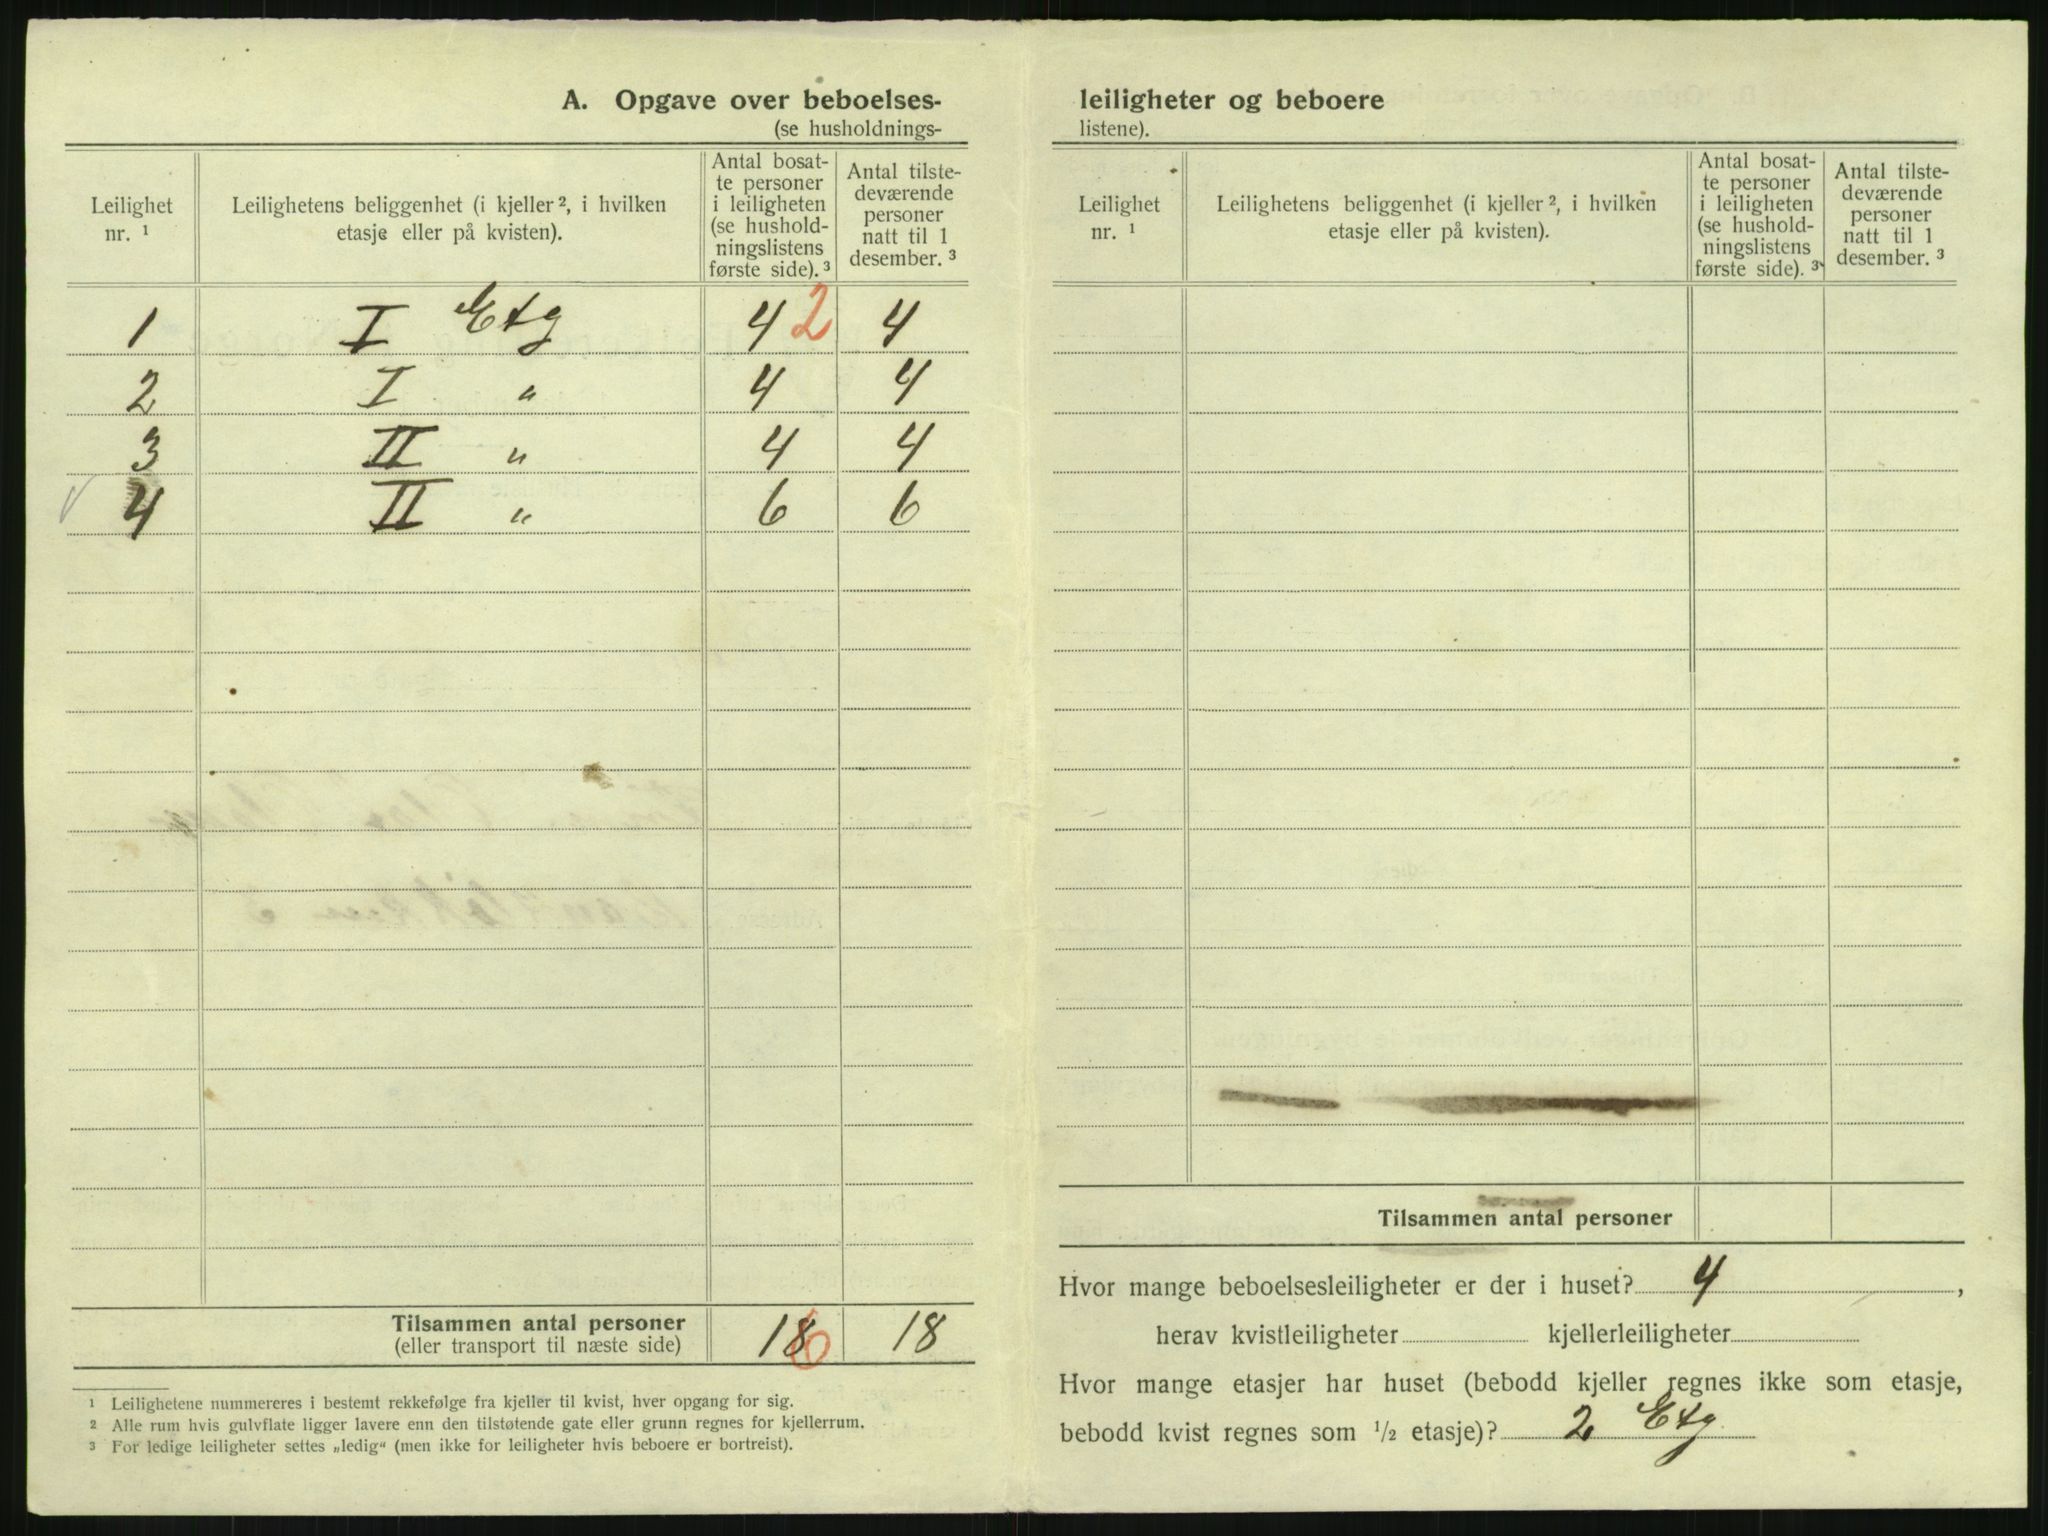 A. Opgave over beboelses-
(se husholdnings-
Leilighet nr. ¹
Leilighetens beliggenhet (i kjeller ², i hvilken etasje eller på kvisten).
Antal bosat-
te personer
i leiligheten
(se hushold-
ningslistens
første side). ³
Antal tilste-
deværende
personer
natt til 1
desember. ³
1 I Etg 4 2 4
2 I " 4 4
3 II " 4 4
4 II " 6 6
Tilsammen antal personer 18 6 18
(eller transport til næste side)
¹ Leilighetene nummereres i bestemt rekkefølge fra kjeller til kvist, hver opgang for sig.
² Alle rum hvis gulvflate ligger lavere enn den tilstøtende gate eller grunn regnes for kjellerrum.
³ For ledige leiligheter settes „ledig“ (men ikke for leiligheter hvis beboere er bortreist).
leiligheter og beboere
listene).
Leilighet nr. ¹
Leilighetens beliggenhet (i kjeller ², i hvilken etasje eller på kvisten).
Antal bosat-
te personer
i leiligheten
(se hushold-
ningslistens
første side). ³
Antal tilste-
deværende
personer
natt til 1
desember. ³
Tilsammen antal personer
Hvor mange beboelsesleiligheter er der i huset? 4 ,
herav kvistleiligheter kjellerleiligheter
Hvor mange etasjer har huset (bebodd kjeller regnes ikke som etasje,
bebodd kvist regnes som ½ etasje)? 2 Etg.